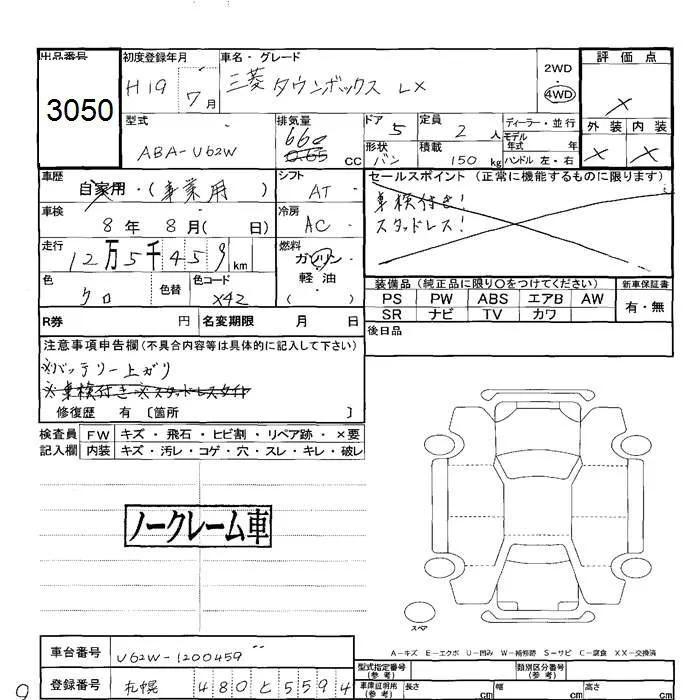 出品番号 初度登録年月 車名・グレード 評価点
3050 H19 7月 三菱 タウンボックス LX 2WD 4WD ×
型式 排気量 ドア 定員 ディーラー・並行 外装 内装
ABA-U62W 660 0.65 cc 5 2人 モデル年式 年 × ×
形状 積載 ハンドル 左・右
バン 150kg
車歴 自家用・(事業用) シフト AT セールスポイント (正常に機能するものに限ります)
車検付き!
車検 8年 8月( 日) 冷房 AC スタッドレス!
走行 12万5千459km 燃料 ガソリン
軽油
( )
色 クロ 色替 色コード X42 装備品 (純正品に限り○をつけてください) 新車保証書
PS PW ABS エアB AW 有・無
R券 円 名変期限 月 日 SR ナビ TV カワ
後日品
注意事項申告欄(不具合内容等は具体的に記入して下さい)
※バッテリー上がり
※車検付き※スタッドレスタイヤ
修復歴 有 〔箇所 〕
検査員 FW キズ・飛石・ヒビ割・リペア跡・×要
記入欄 内装 キズ・汚レ・コゲ・穴・スレ・キレ・破レ
ノークレーム車
スペア
A-キズ E-エクボ U-凹み W-補修跡 S-サビ C-腐食 XX-交換済
車台番号 U62W-1200459 型式指定番号(参考) 類別区分番号(参考)
登録番号 札幌 480 と 5594 車庫証明用(参考) 長さ cm 幅 cm 高さ cm
9